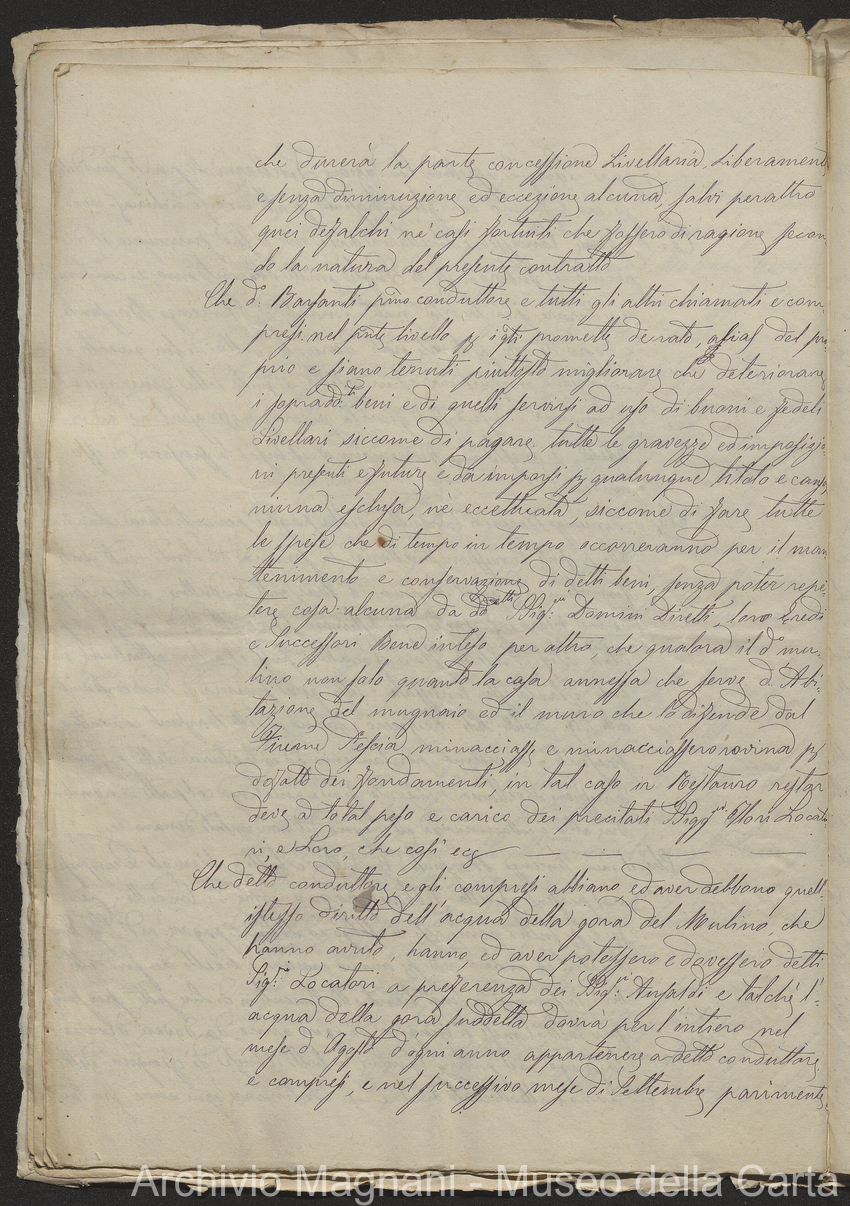 che durerà la parte concessione Livellaria, Liberament
e senza diminuzione ed eccezione alcuna, salvi peraltro
quei defalchi ne' casi fortuiti che fossero di ragione secon
do la natura del presente contratto
Che d.° Barsanti p̃mo conduttore e tutti gli altri chiamati e com-
presi nel pn̄te livello p promette de rato del pro
prio e siano tenuti piuttosto migliorare che deteriorare
i sopradd.ti beni e di quelli servirsi ad uso di buoni e fedeli
Livellari siccome di pagare tutte le gravezze ed imposizio-
ni presenti e future e da imporsi p qualunque titolo e causa
niuna esclusa, nè eccettuata, siccome di fare tutte
le spese che di tempo in tempo occorreranno per il man
tenimento e conservazione di detti beni, senza poter repe-
tere cosa alcuna da detti SSig.ri Domini Diretti, loro Eredi
e Successori Bene inteso per altro, che qualora il d.° mu-
lino non solo quanto la casa annessa che serve d'Abi-
tazione del mugnaio ed il muro che lo difende dal
Fiume Pescia minacciasse e minacciassero rovina p
difetto dei fondamenti, in tal caso in Restauro restar
deve a total peso e carico dei precitati SSigg.ri Locato
ri, e Loro, che così ecc
Che detto conduttore e gli compresi abbiano, ed aver debbono quell'
istesso diritto dell'acqua della gora del Mulino, che
hanno avuto, hanno, ed aver potessero e dovessero detti
Sig.ri Locatori a preferenza dei SSig.ri Ansaldi e talchè l'-
acqua della gora suddetta dovrà per l'intiero nel
mese d'Agosto d'ogni anno appartenere a detto conduttore
e compresi, e nel successivo mese di Settembre parimente
Archivio Magnani - Museo della Carta